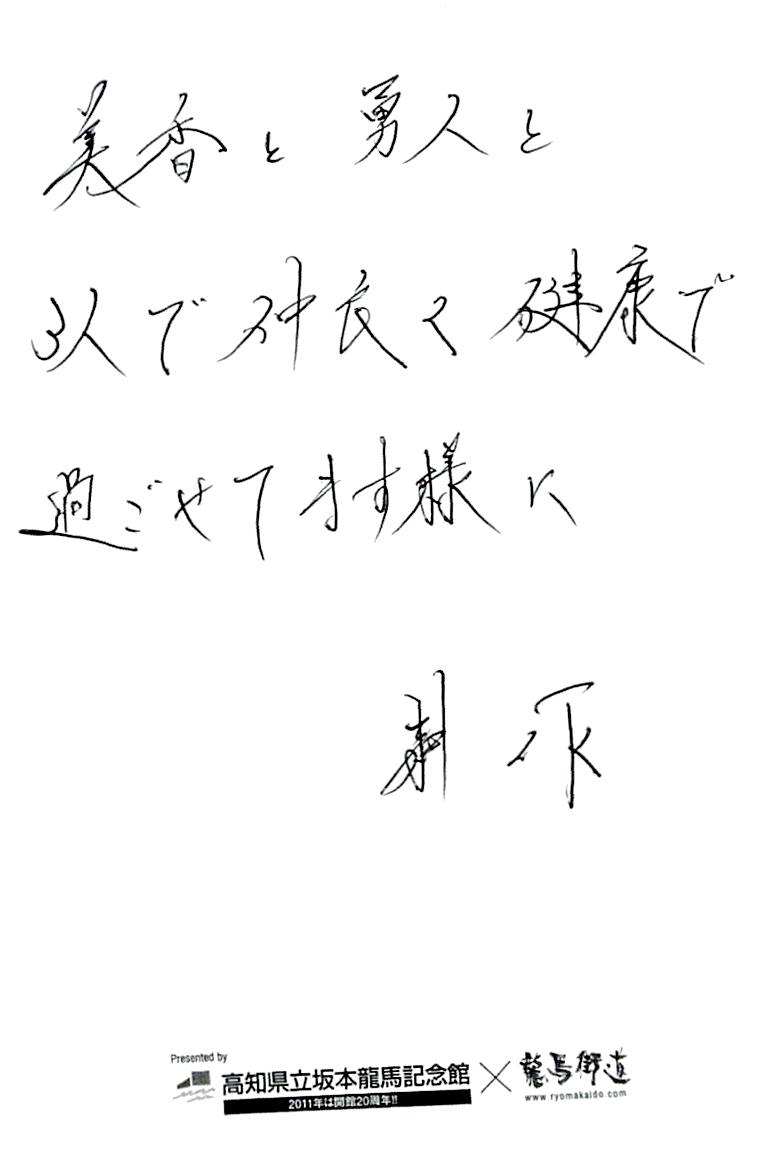 美香と 勇人と
3人で仲良く健康で
過ごせてます様に
耕作
Presented by
高知県立坂本龍馬記念館 × 龍馬街道
2011年は開館20周年!! www.ryomakaido.com